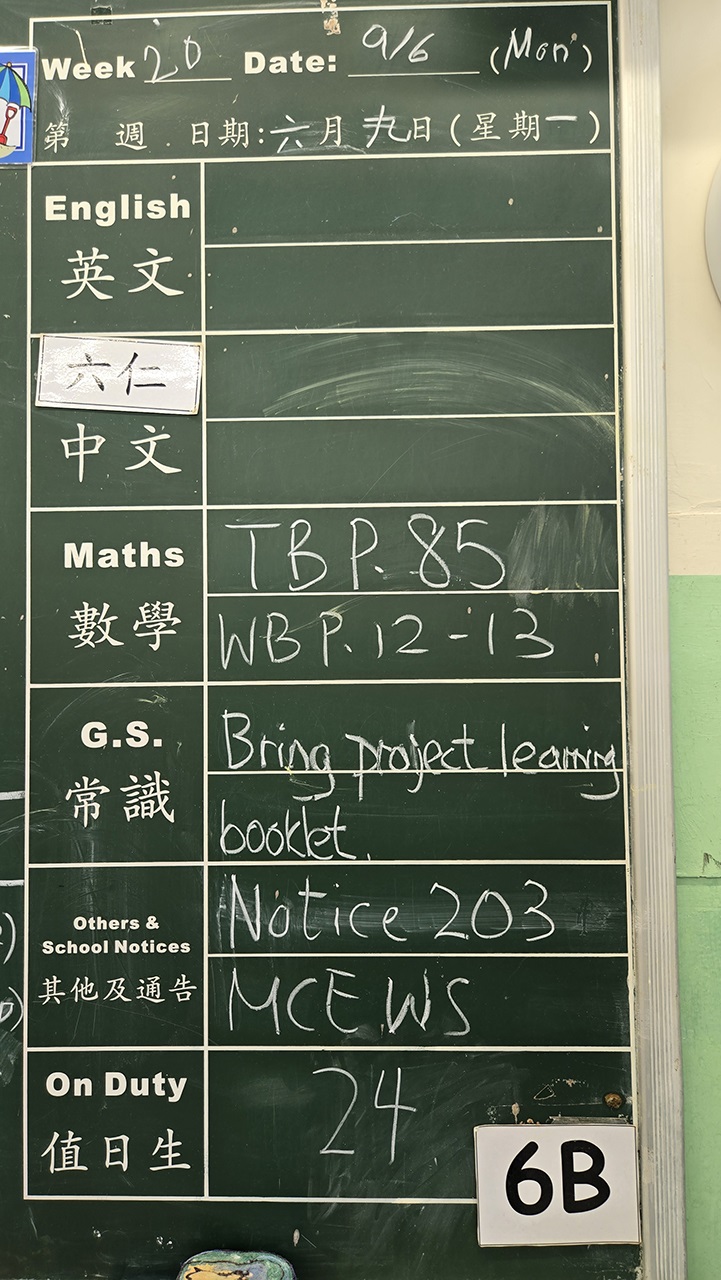 Week 20 Date: 9/6 (Mon)
第 週 日期:六月九日(星期一)
English
英文
六仁
中文
Maths
數學
TB P. 85
WB P. 12-13
G.S.
常識
Bring project learning
booklet.
Others &
School Notices
其他及通告
Notice 203
MCE WS
On Duty
值日生
24
6B